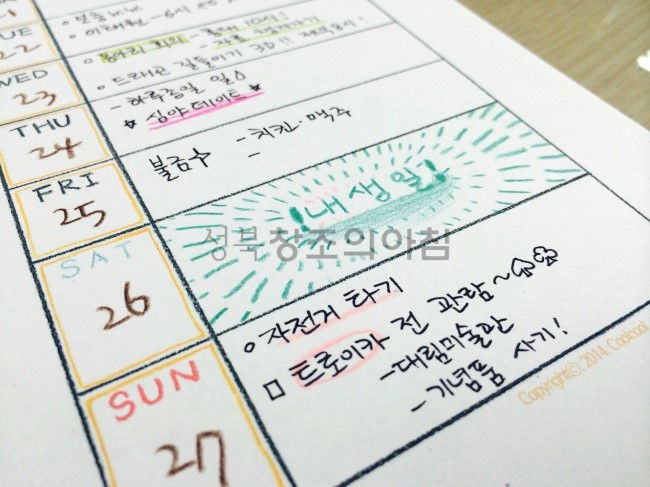 TUE
22
이태원-6시
동아리 회의 -
WED
23
드래곤 길들이기 3D!!
THU
24
- 하루종일 일
심야데이트
FRI
25
불금
- 치킨·맥주
-
SAT
26
내 생일!
성북창조의아침
SUN
27
자전거 타기
트로이카 전 관람~
-대림미술관
- 기념품 사기!
Copyright© 2014. Coolcool